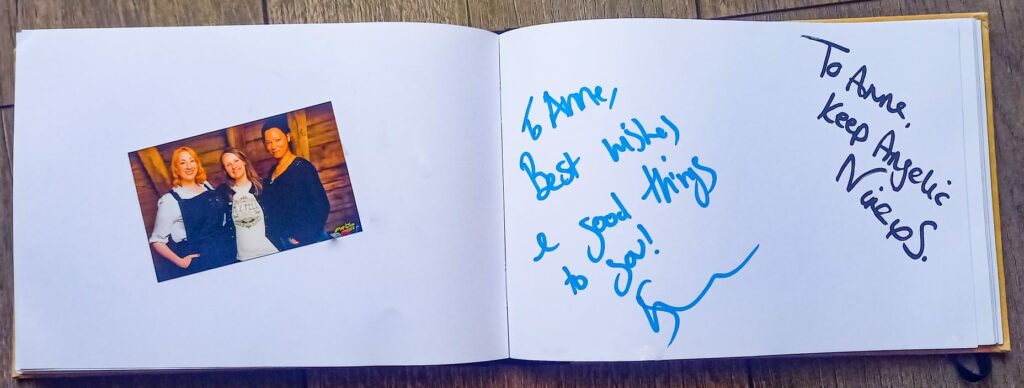 To Anne,
Best wishes
& good things
to you!
To Anne,
Keep Angelic